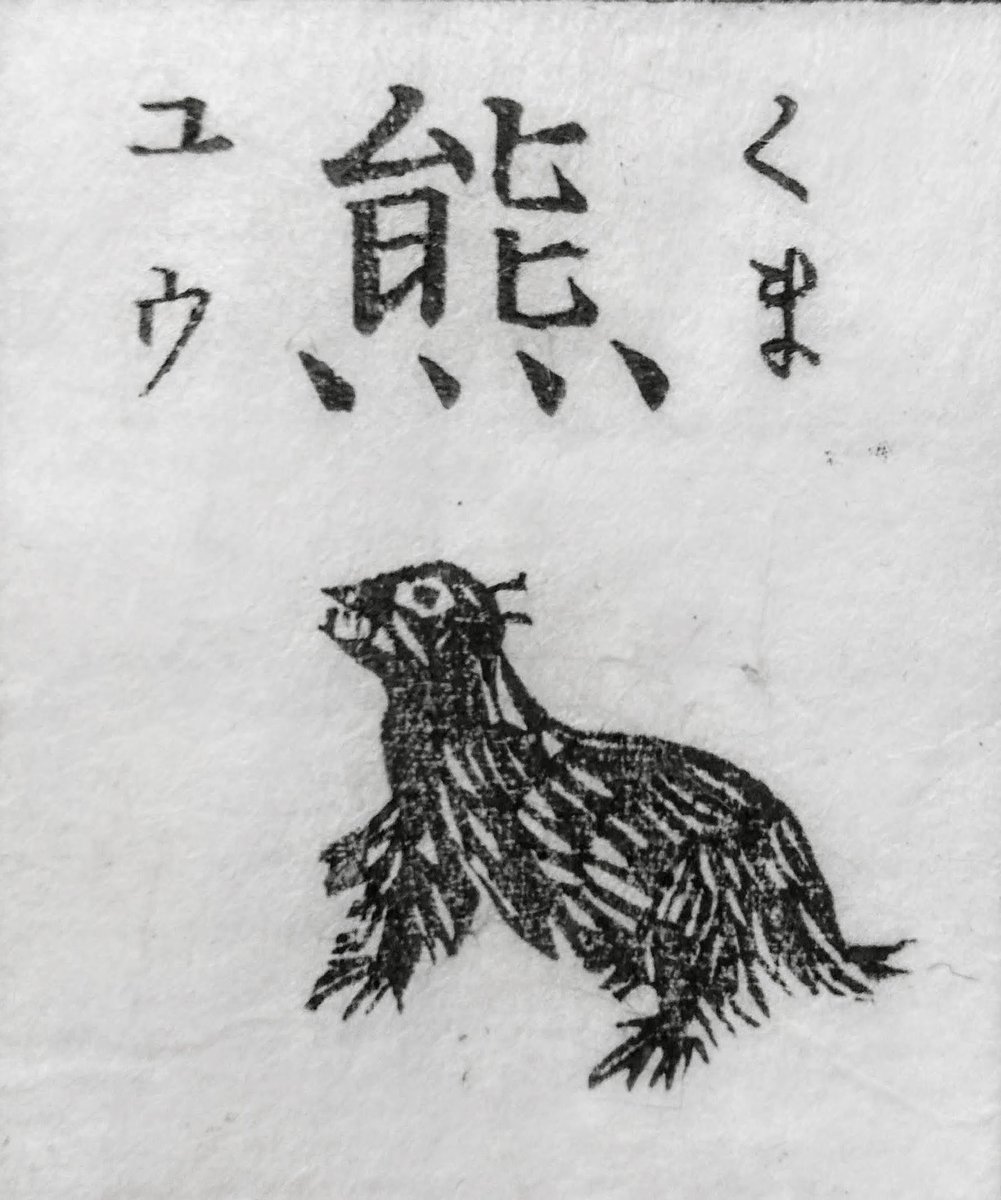 くま
熊
ユウ